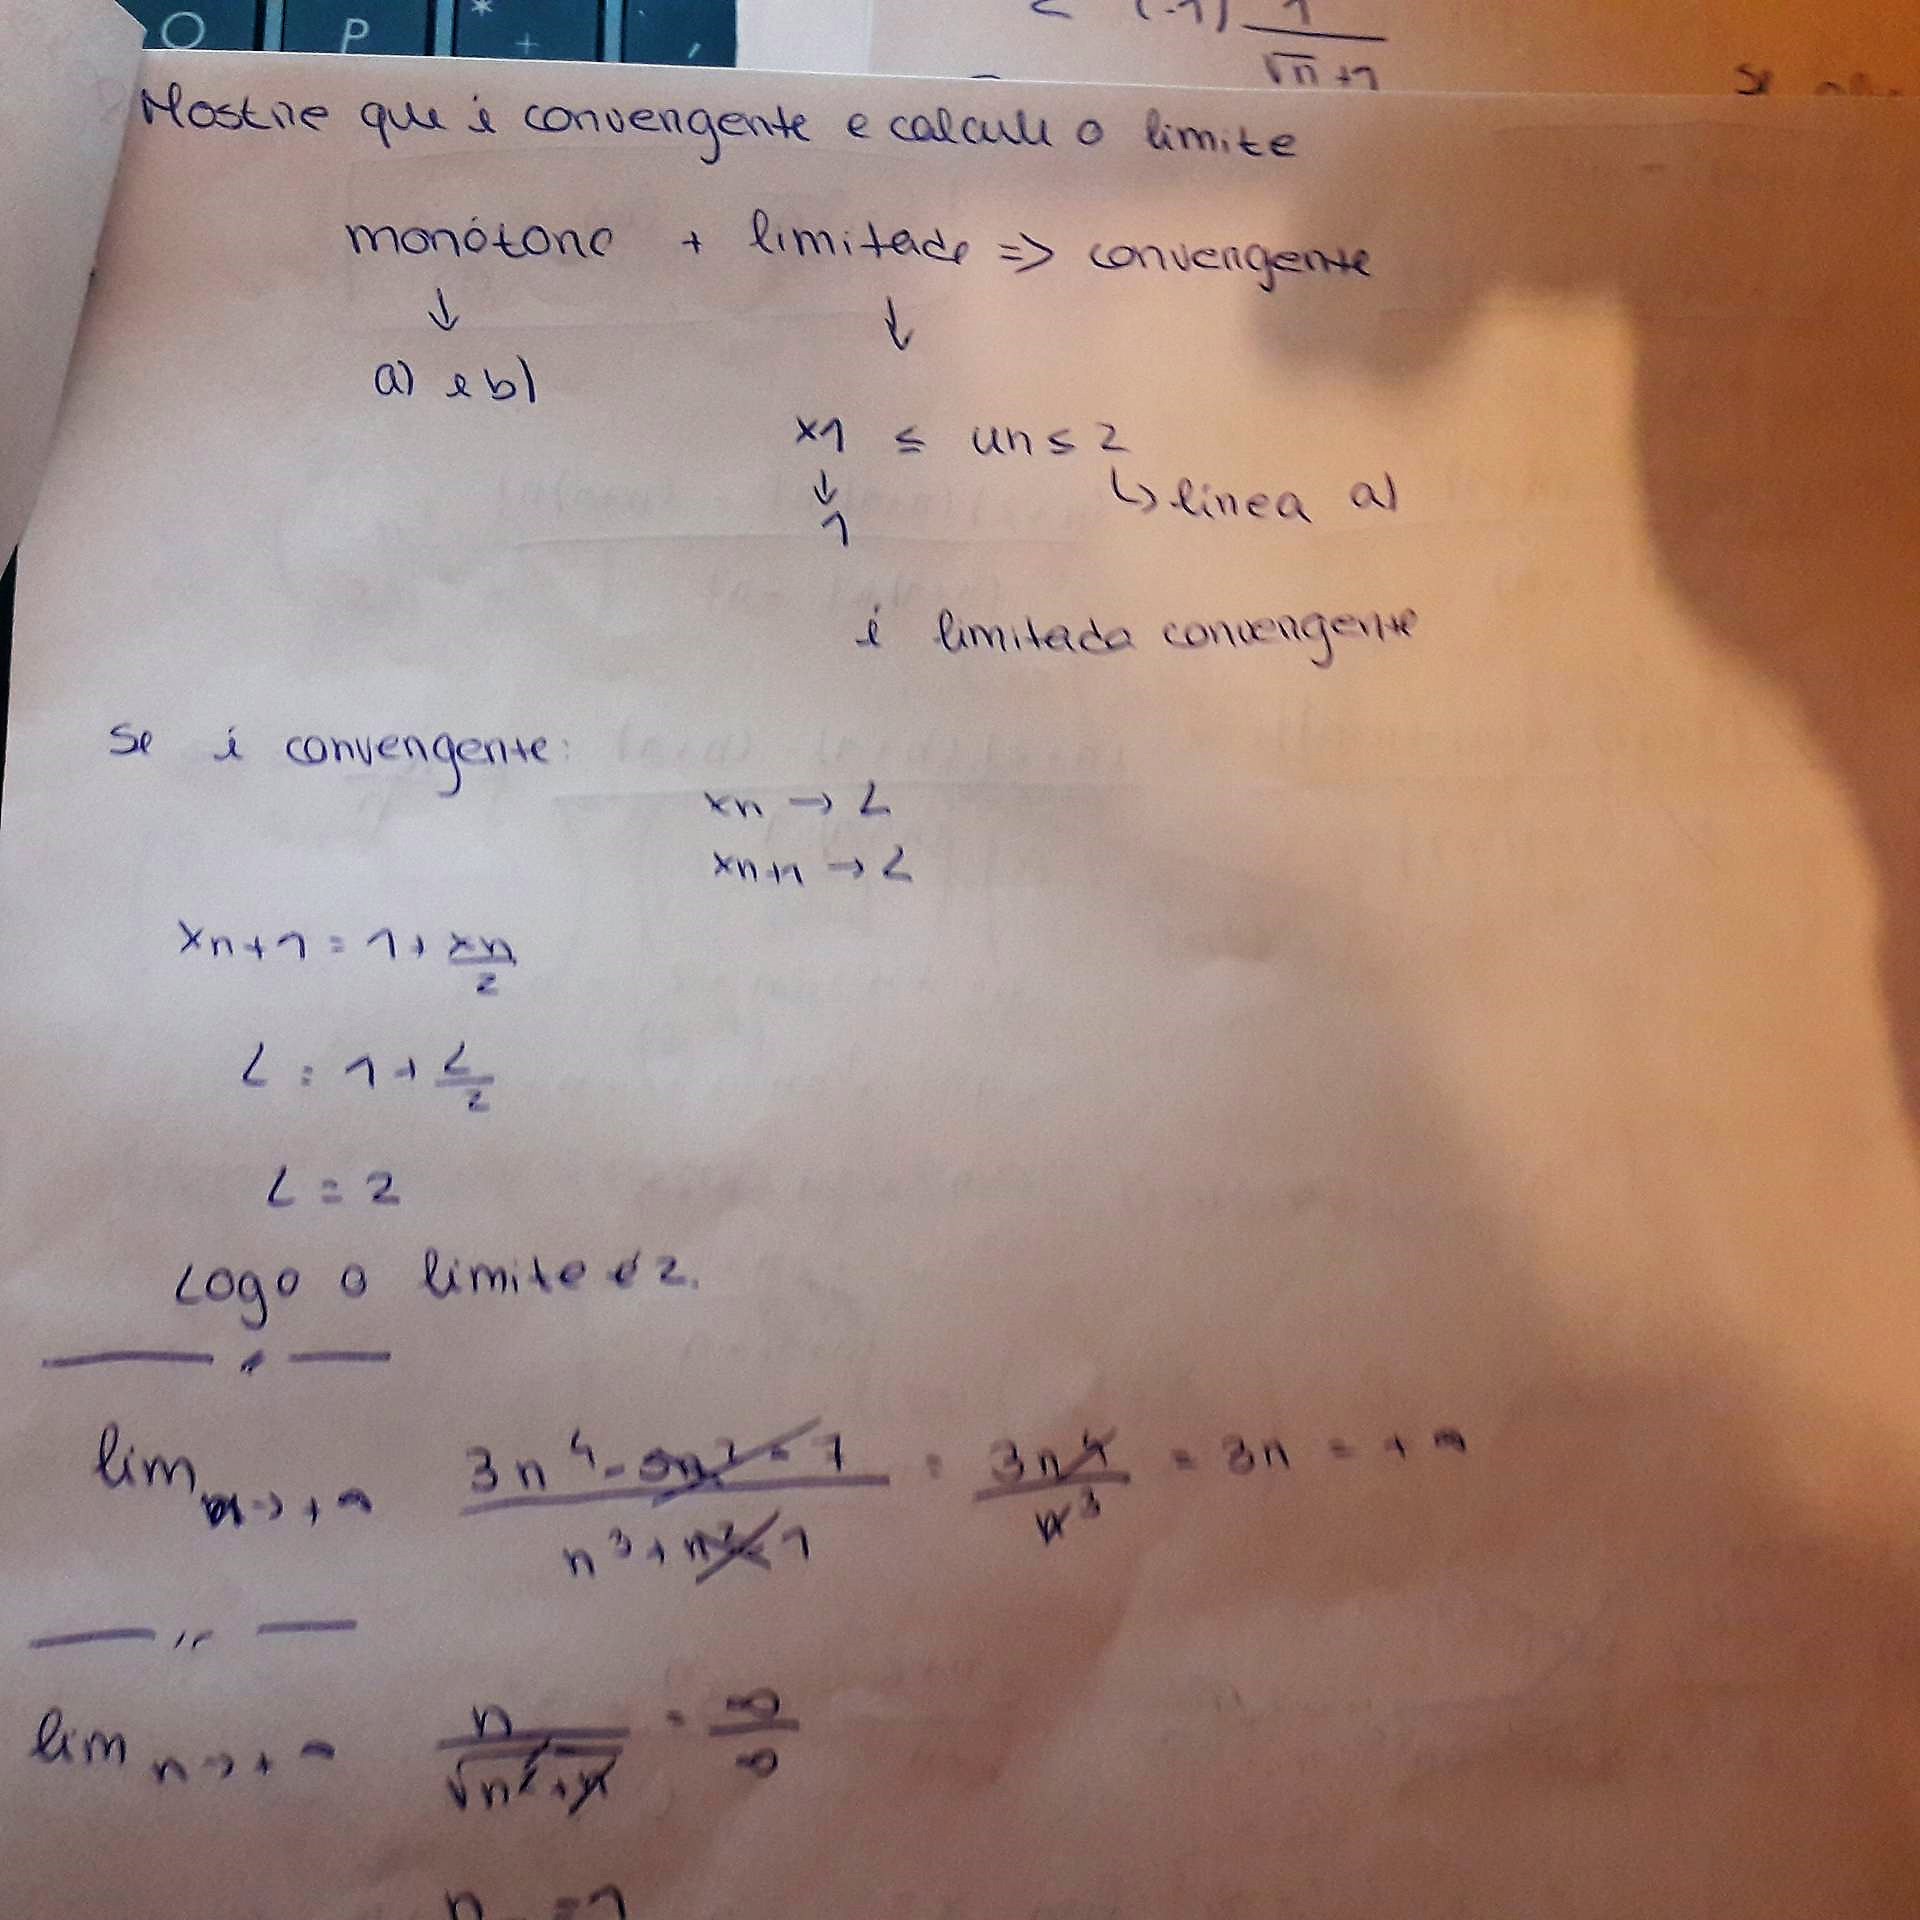 O P * + ,
< (-1) 1
√n +1
se
Mostre que é convergente e calcule o limite
monótona + limitada => convergente
↓ ↓
a) e b)
x1 ≤ un ≤ 2
↓ ↳ línea a)
1
é limitada convergente
Se é convergente:
xn → L
xn+1 → L
xn+1 = 1 + xn/2
L = 1 + L/2
L = 2
Logo o limite é 2.
lim n→+∞ 3n⁴ - 5n² - 1 / n³ + n² - 1 = 3n⁴/n³ = 3n = +∞
lim n→+∞ n/√n²+n = ∞/∞
n = 1